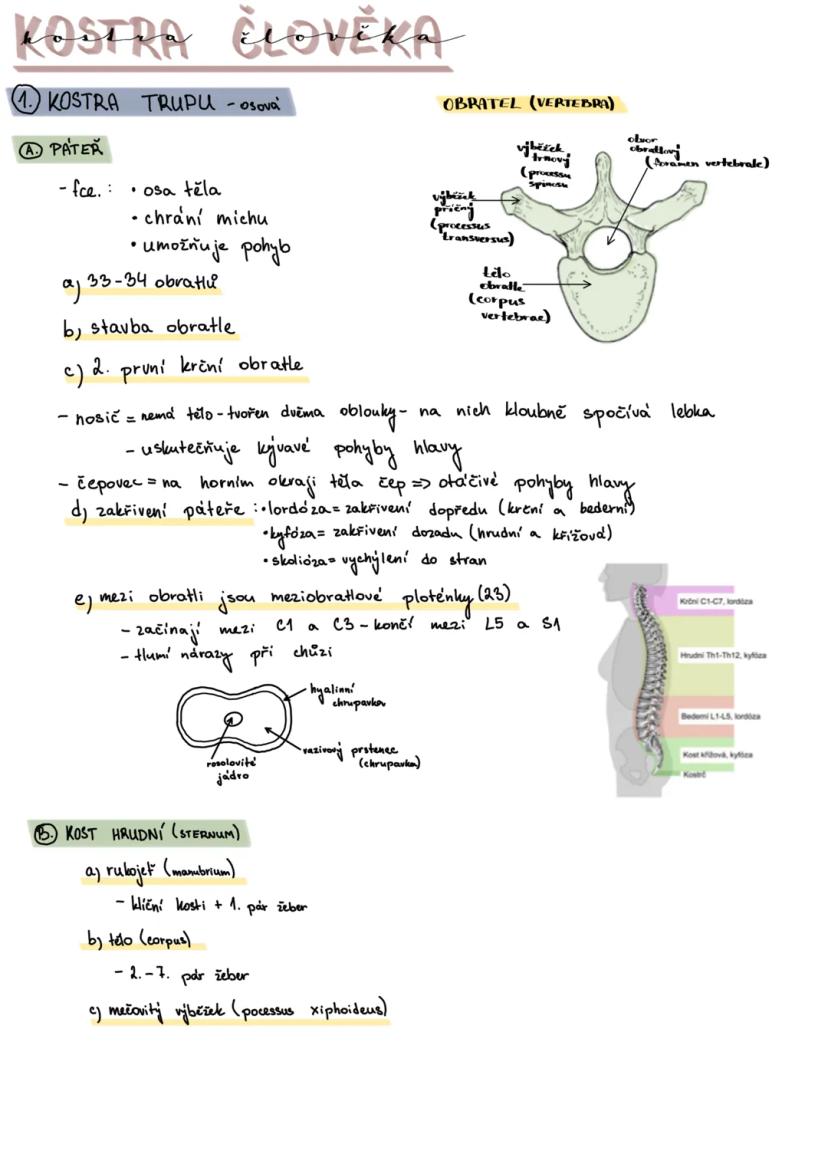 KOSTRA ČLOVĚKA
kostra člověka
1. KOSTRA TRUPU - osová
A. PÁTEŘ
- fce. : • osa těla
• chrání míchu
• umožňuje pohyb
a) 33-34 obratlů
b) stavba obratle
c) 2. první krční obratle
OBRATEL (VERTEBRA)
výběžek
trnový
(processu
spinosu
otvor
obratlový
(foramen vertebrale)
výběžek
příčný
(processus
transversus)
tělo
obratle
(corpus
vertebrae)
- nosič = nemá tělo - tvořen dvěma oblouky - na nich kloubně spočívá lebka
- uskutečňuje kývavé pohyby hlavy
- čepovec = na horním okraji těla čep => otáčivé pohyby hlavy
d) zakřivení páteře : • lordóza = zakřivení dopředu (krční a bederní)
• kyfóza = zakřivení dozadu (hrudní a křížová)
• skolióza = vychýlení do stran
e) mezi obratli jsou meziobratlové ploténky (23)
- začínají mezi C1 a C3 - končí mezi L5 a S1
- tlumí nárazy při chůzi
hyalinní
chrupavka
vazivový prstenec
(chrupavka)
rosolovité
jádro
Krční C1-C7, lordóza
Hrudní Th1-Th12, kyfóza
Bederní L1-L5, lordóza
Kost křížová, kyfóza
Kostrč
B. KOST HRUDNÍ (STERNUM)
a) rukojeť (manubrium)
- klíční kosti + 1. pár žeber
b) tělo (corpus)
- 2.-7. pár žeber
c) mečovitý výběžek (pocessus xiphoideus)